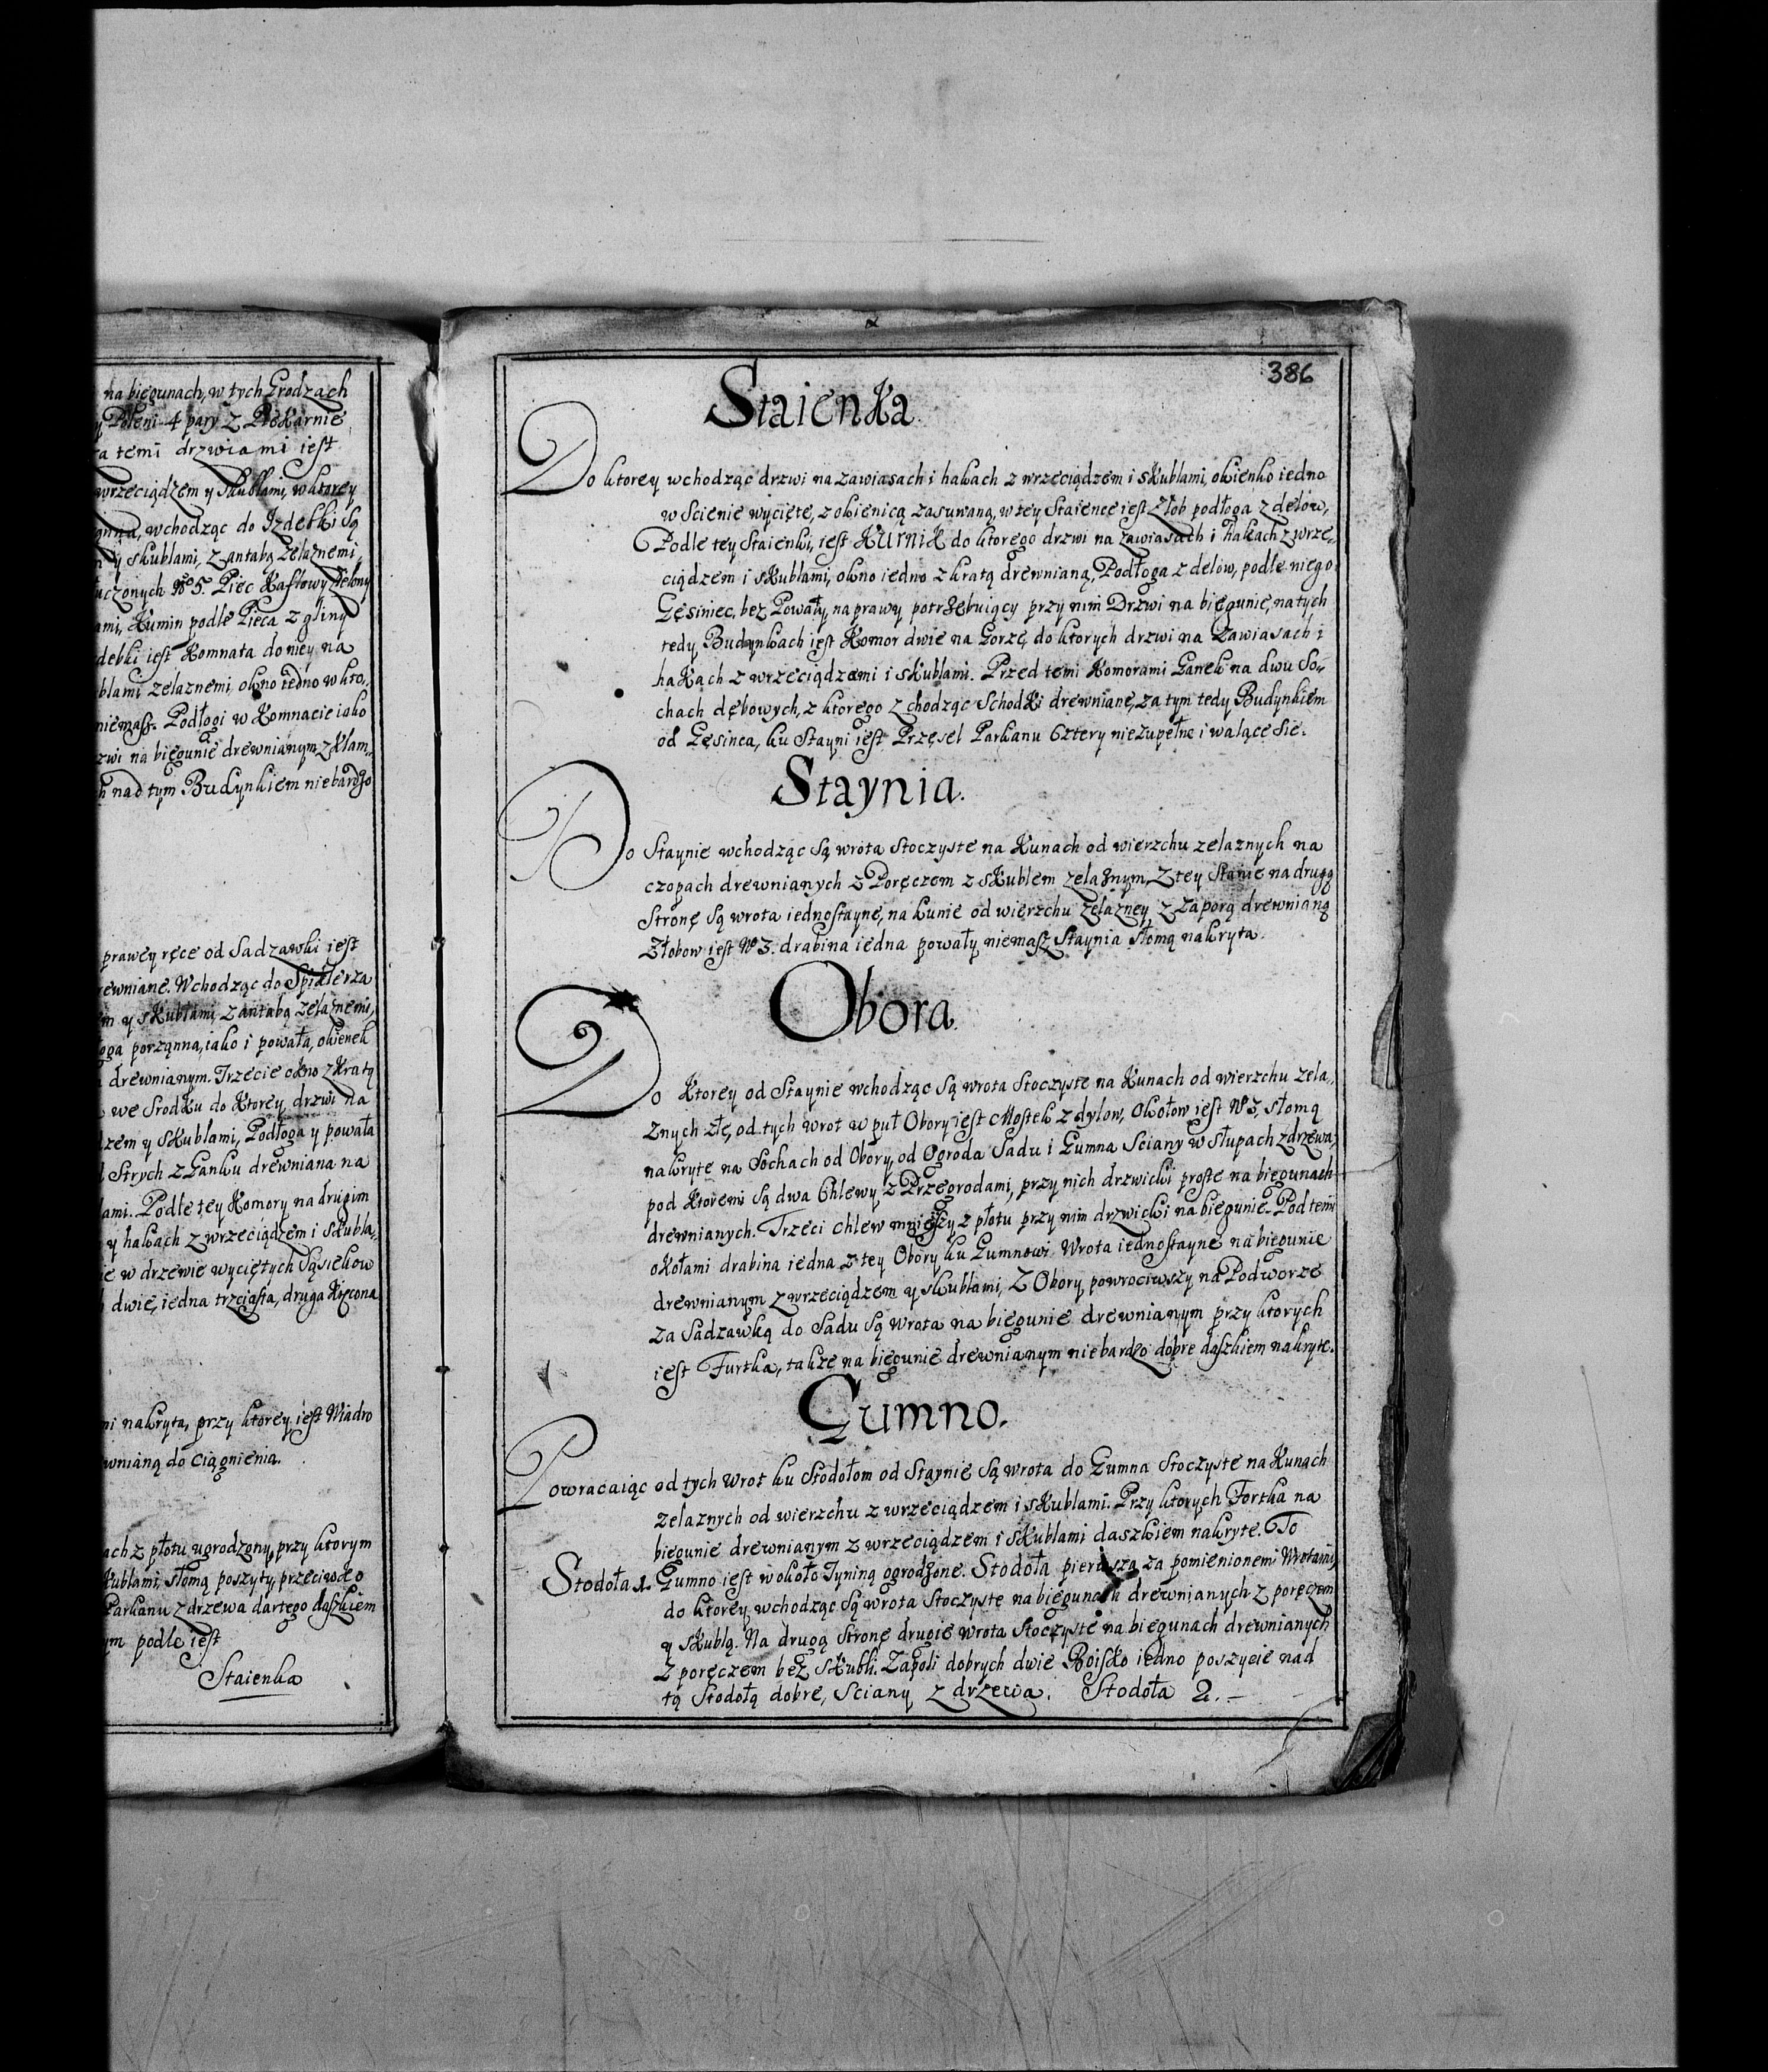 na biegunach, w tych Grodzach
Poleni 4 pary z Piekarnie
a temi drzwiami iest
wrzeciądzem y skublami, w ktorey
wchodząc do Izdebki są
y skublami, z antabą zelaznemi,
Nº 5. Piec Kaflowy zielony
ami, Kumin podle Pieca z gliny
debki iest Komnata do niey na
blami zelaznemi, okno iedno w kto„
niemasz. Podłogi w Komnacie iako
zwi na biegunie drewnianym z klam„
nad tym Budynkiem niebardzo
prawey ręce od Sadzawki iest
ewniane. Wchodząc do Spiklerza
m y skublami z antabą zelaznemi,
oga porządna, iako i powała, okienek
drewnianym. Trzecie okno z Kratą
we Srodku do Ktorey drzwi na
dzem y skublami, Podłoga y powała
Strych z Ganku drewniana na
ami. Podle tey Komory na drugim
y hakach z wrzeciądzem i skubla„
ie w drzewie wyciętych Sąsiekow
dwie, iedna trzciasta, druga
ni nakryta, przy ktorey iest Wiadro
wnianą do ciągnienia.
ach z płotu ugrodzony, przy ktorym
Kublami, słomą poszyty, przeciwko
Parkanu z drzewa dartego daszkiem
ym podle iest
Staienka
386
Staienka.
Do ktorey wchodząc drzwi na zawiasach i hakach z wrzeciądzem i skublami, okienko iedno
w Scienie wycięte, z okienicą zasuwaną, w tey Staience iest Złob podłoga z delow,
Podle tey Staienki, iest Kurnik do ktorego drzwi na zawiasach i hakach z wrze„
ciądzem i skublami, okno iedno z kratą drewnianą, Podłoga z delow, podle niego
Gęsiniec, bez Powały, naprawy potrzebuiący przy nim Drzwi na biegunie, na tych
tedy Budynkach iest Komor dwie na Gorze, do ktorych drzwi na Zawiasach i
haKach z wrzeciądzami i skublami. Przed temi Komorami Ganek na dwu So„
chach dębowych, z ktorego zchodząc Schodki drewniane, za tym tedy Budynkiem
od Gęsinca, ku Stayni iest Przęsel Parkanu Cztery niezupełne i walące sie.
Staynia.
Do Staynie wchodząc Są wrota stoczyste na Kunach od wierzchu zelaznych na
czopach drewnianych z Poręczem z skublem zelaznym, Z tey Stanie na drugą
Stronę Są wrota iednostayne, na kunie od wierzchu zelazney z zaporą drewnianą
Złobow iest Nº 3. drabina iedna powały niemasz Staynia słomą nakryta.
Obora.
Do Ktorey od Staynie wchodząc Są wrota stoczyste na Kunach od wierzchu zela„
znych złe, od tych wrot w puł Obory iest Mostek z dylow, Okołow iest Nº 3, słomą
nakryte na Sochach od Obory, od Ogroda Sadu i Gumna Sciany w Słupach z drzewa,
pod Ktoremi Są dwa Chlewy z Przegrodami, przy nich drzwiczki proste na biegunach
drewnianych. Trzeci chlew mnieyszy z płotu przy nim drzwiczki na biegunie. Pod temi
okołami drabina iedna z tey Obory ku Gumnowi Wrota iednostayne na biegunie
drewnianym z wrzeciądzem y skublami, Z Obory powrociwszy na Podworze
za Sadzawką do Sadu Są Wrota na biegunie drewnianym przy ktorych
iest Furtka, także na biegunie drewnianym niebardzo dobre daszkiem nakryte.
Gumno.
Powracaiąc od tych Wrot ku Stodołom od Staynie Są wrota do Gumna stoczyste na Kunach
zelaznych od wierzchu z wrzeciądzem i skublami. Przy ktorych Fortka na
biegunie drewnianym z wrzeciądzem i skublami daszkiem nakryte. To
Stodoła 1. Gumno iest wokoło Tyniną ogrodzone. Stodoła pierwsza za pomienionemi Wrotami,
do ktorey wchodząc Są wrota stoczyste na biegunach drewnianych z poręczem
y skublą. Na drugą Stronę drugie wrota stoczyste na biegunach drewnianych
z poręczem bez skubli. Zapoli dobrych dwie Boisko iedno poszycie nad
tą Stodołą dobre, Sciany z drzewa. Stodoła 2.